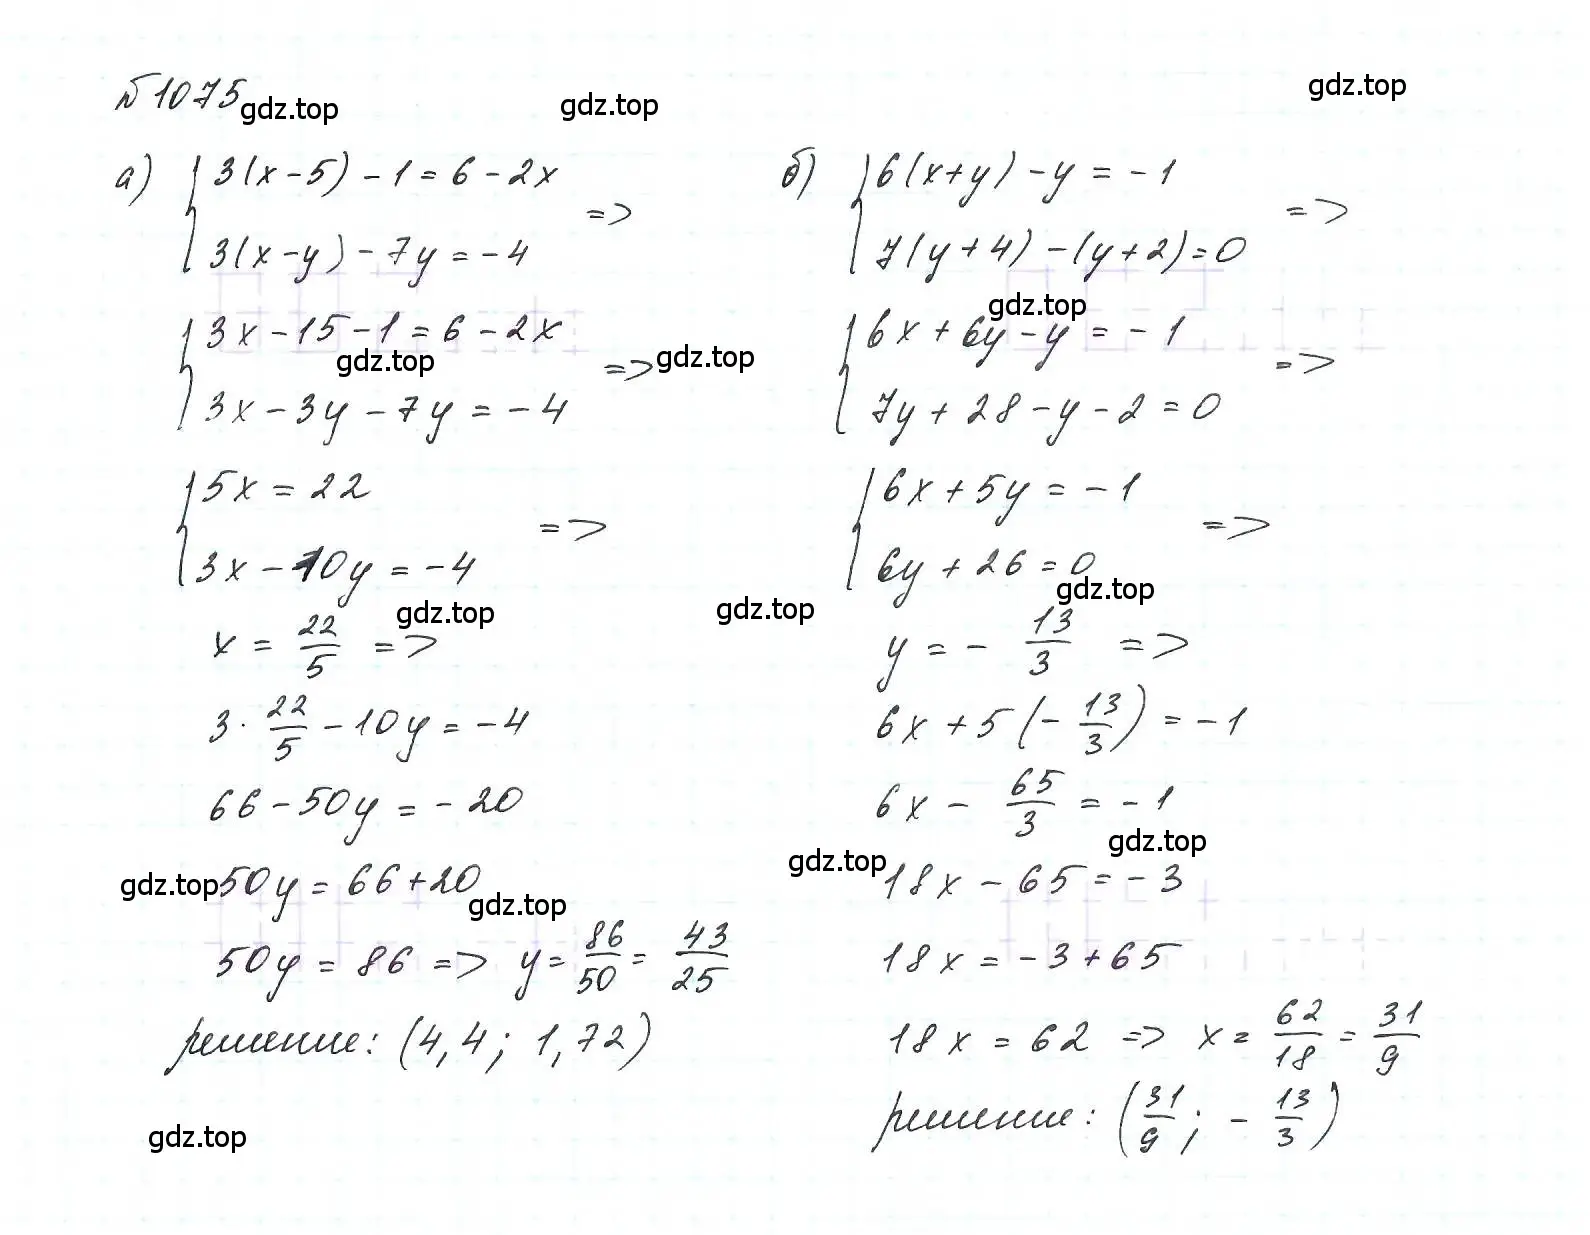 №1075
gdz.top gdz.top gdz.top
а) { 3(x-5)-1=6-2x
3(x-y)-7y=-4 =>
gdz.top
{ 3x-15-1=6-2x
3x-3y-7y=-4 =>
gdz.top gdz.top
{ 5x=22
3x-10y=-4 =>
gdz.top gdz.top gdz.top
x = 22/5 =>
3·22/5-10y=-4
66-50y=-20
gdz.top
50y=66+20
gdz.top
50y=86 => y=86/50=43/25
решение: (4,4; 1,72)
gdz.top
б) { 6(x+y)-y=-1
7(y+4)-(y+2)=0 =>
{ 6x+6y-y=-1
7y+28-y-2=0 =>
{ 6x+5y=-1
6y+26=0 =>
y=-13/3 =>
6x+5(-13/3)=-1
6x-65/3=-1
gdz.top gdz.top
18x-65=-3
18x=-3+65
18x=62 => x=62/18=31/9
решение: (31/9; -13/3)